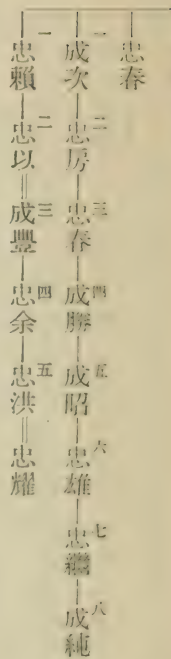 忠春
一成次―二忠房―三忠春―四成勝―五成昭―六忠雄―七忠繼―八成純
一忠賴―二忠以‖三成豐―四忠余―五忠洪‖忠耀